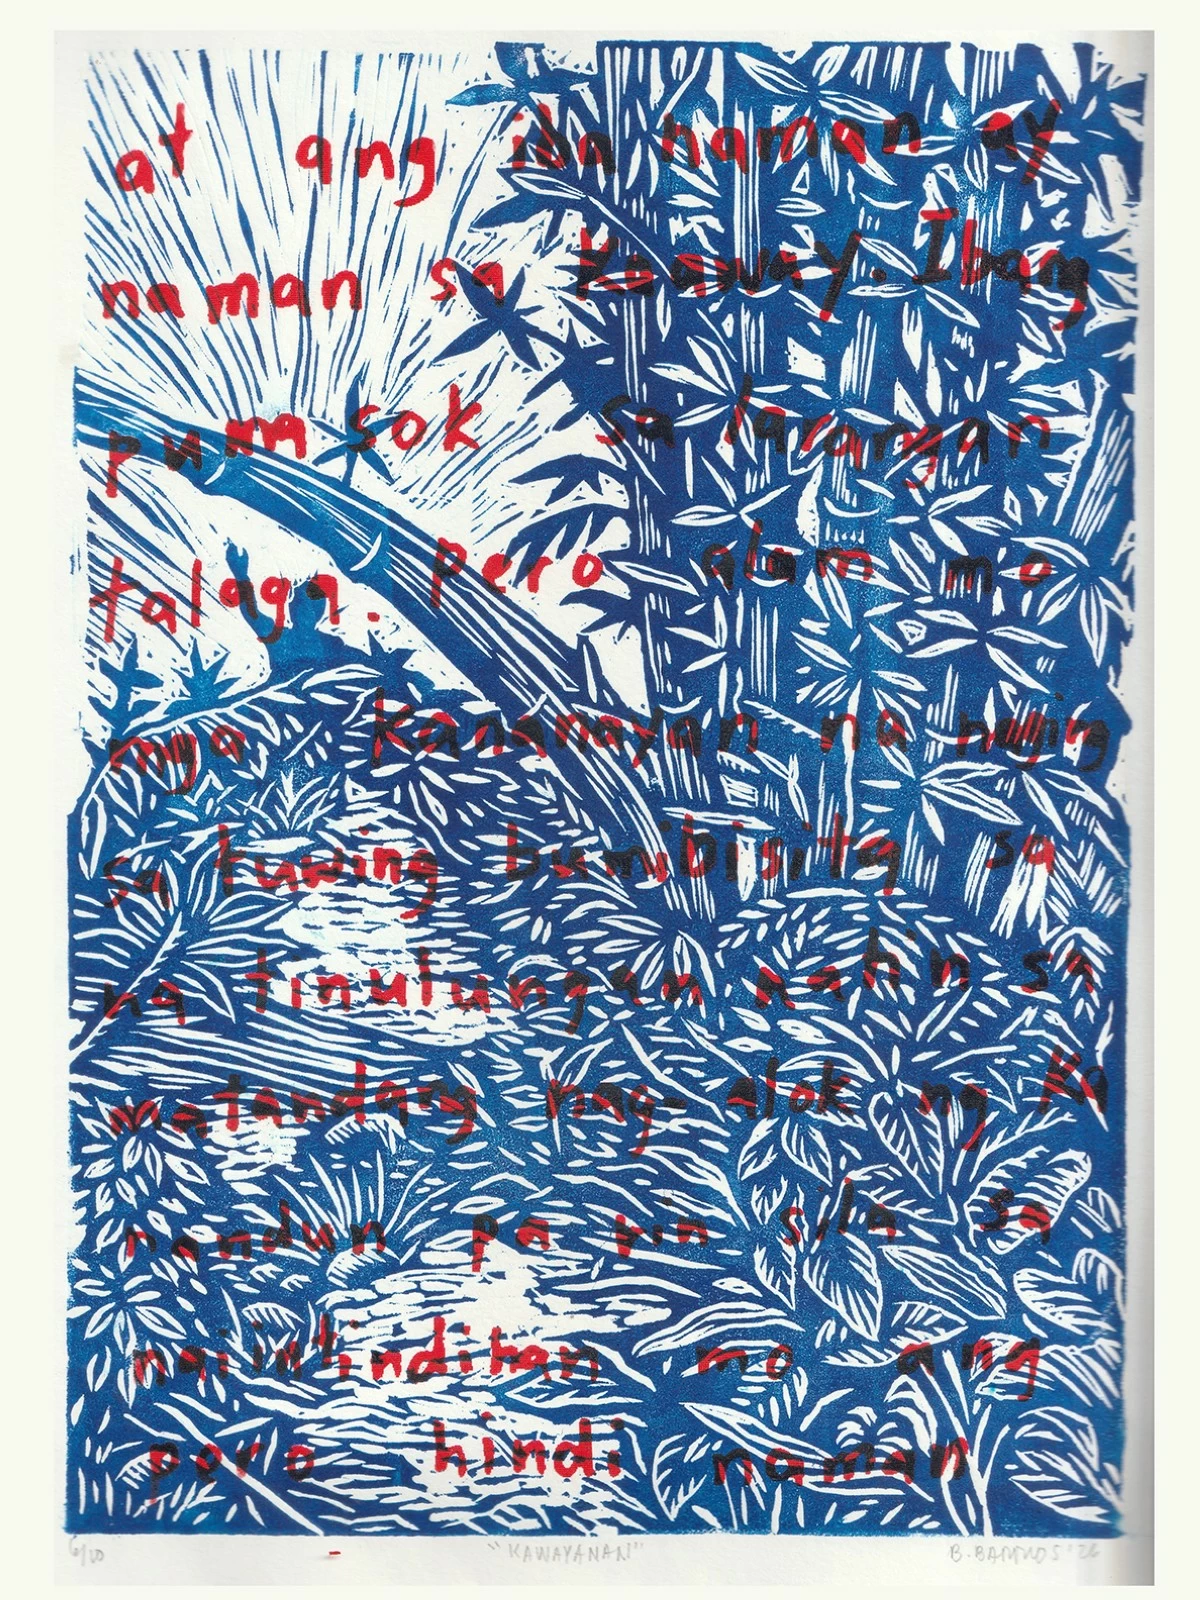 at ang iba naman ay
naman sa kaaway. Ibang
pumasok sa larangan
talaga. pero alam mo
mga kananayan na naging
sa tuwing bumibisita sa
na tinulungan nahin sa
matandang nag-alok ng ka
nandun pa rin sila sa
naiintindihan mo ang
pero hindi naman
6/10 "KAWAYANAN" B. BARRIOS '26